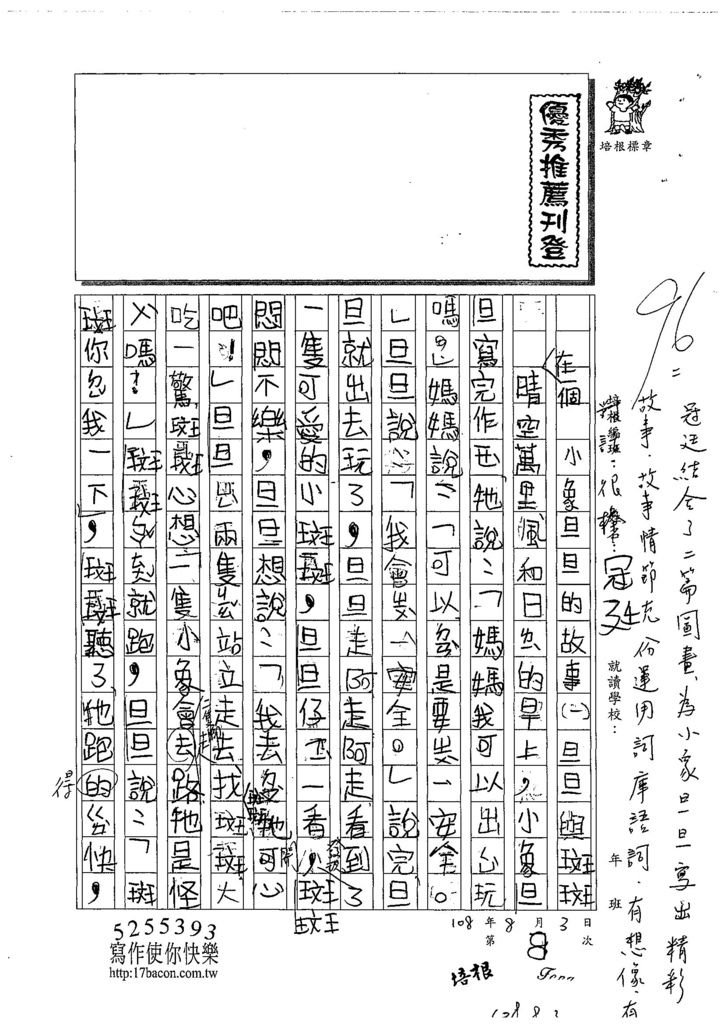 培根標章
優秀推薦刊登
小象旦旦的故事(一)旦旦與斑斑
在個晴空萬里風和日
的早上,小象旦
旦寫完作
牠說:「媽媽我可以出
玩
嗎?」媽媽說:「可以
是要
安全。
」旦旦說:「我會
安全。」說完旦
旦就出去玩了,旦旦走阿走阿走看到了
一隻可愛的小斑斑,旦旦仔
一看,斑斑
悶悶不樂,旦旦想說:「我去
牠
心
吧!」旦旦
兩隻
站立走去找斑斑
吃一驚,斑斑心想「一隻小象會去路牠是怪
ㄨ嗎!」斑斑
就跑,旦旦說:「斑
斑你
我一下」,斑斑聽了牠跑的
快,
得
96
冠廷結合了二篇圖畫、為小象旦旦寫出精彩
故事、故事情節充份運用詞庫語詞,有想像、有
培根編班:
冠廷
就讀學校:
年 班
108年8月3日
第8次
培根
5255393
寫作使你快樂
http:17bacon.com.tw